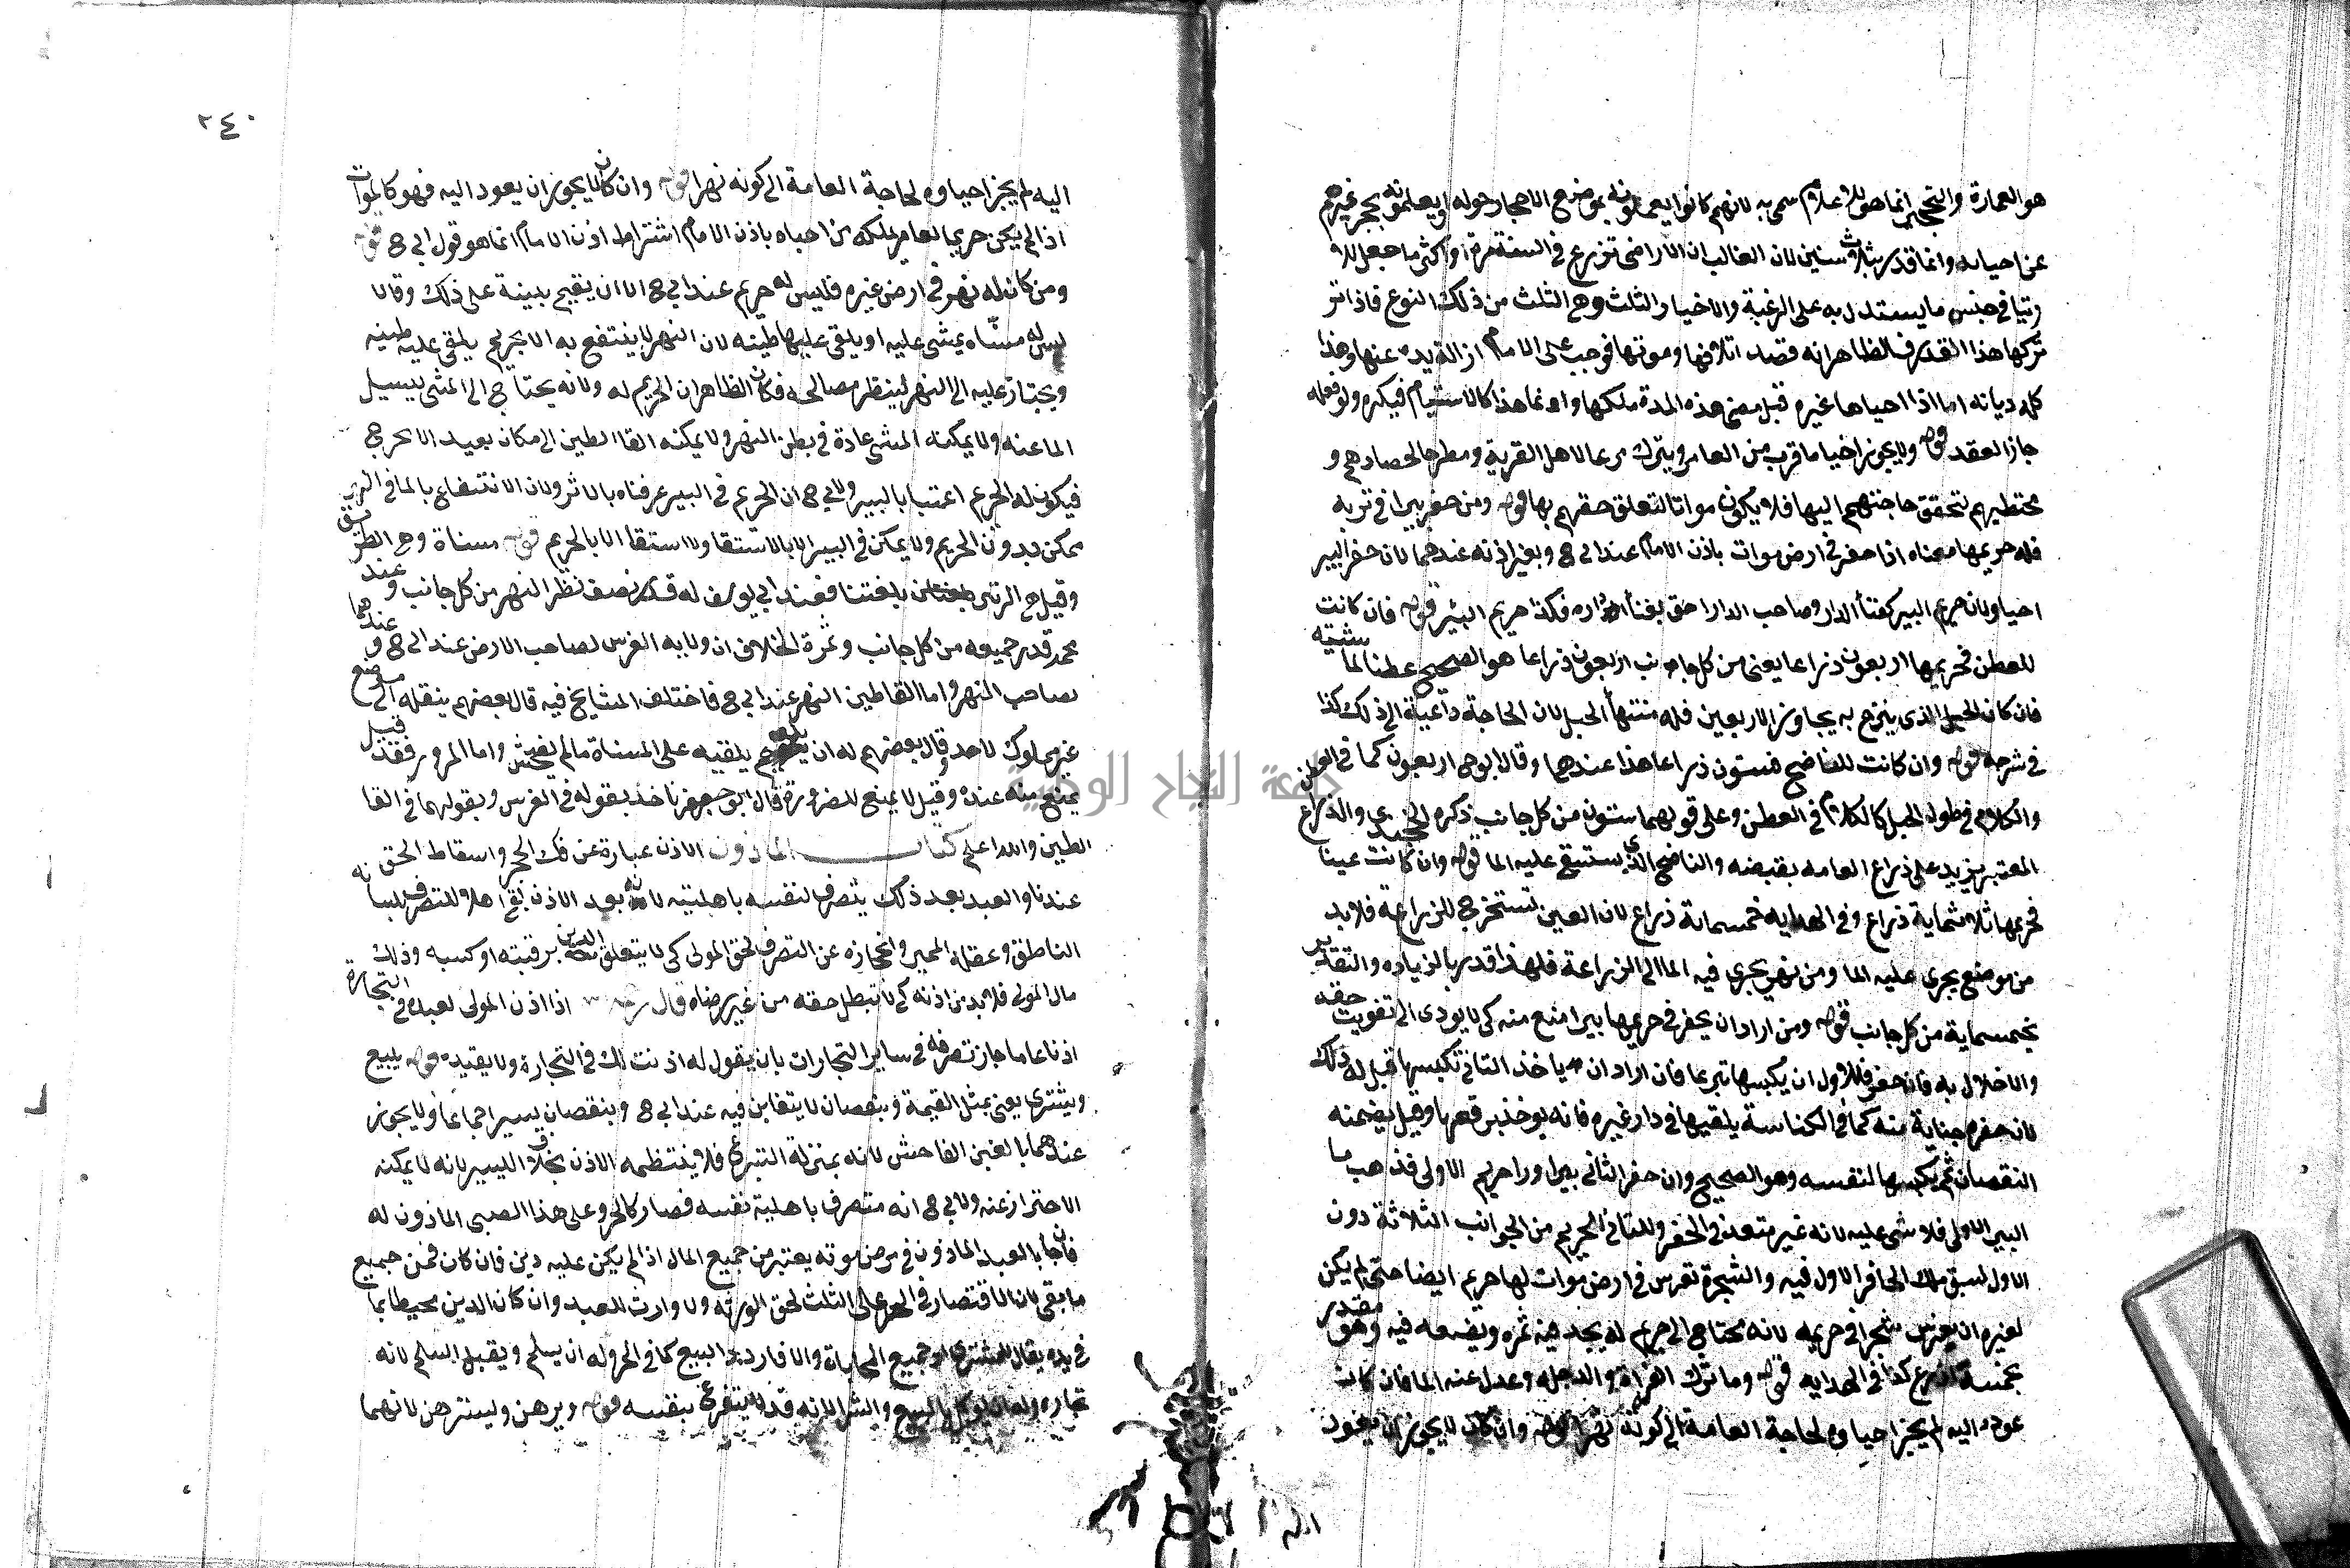 هو العمارة والتحجير انما هو للاعلام سمي به لانهم كانوا يعملونه بوضع الاحجار حوله او يعلمونه بحجر غيرهم
عن احيايه وانما قدر بثلاث سنين لان الغالب ان الاراضي تزرع في السنة مرة او اكثر ما جعل للا
رتيا في جنس ما يستدل به على الرغبة والاختيار والثلث وهي الثلث من ذلك النوع فاذا تر
تركها هذا القدر فالظاهر انه قصد اتلافها وموتها فوجب على الامام ازالة يده عنها وهذا
كله ديانه اما اذا احياها غيره قبل مضي هذه المدة ملكها وانما هذا كالاستيام فيكره ولو فعله
جاز العقد قوله ولا يجوز احيا ما قرب من العامر ويترك مرعا لاهل القرية ومطرحا لحصادهم و
محتطبهم لتحقق حاجتهم اليها فلا يكون مواتا لتعلق حقهم بها قوله ومن حفر بيرا في تربه
فله حريمها معناه اذا حفر في ارض موات باذن الامام عند ابي ح وبغير اذنه عندهما لان حفر البير
احيا ولان حريم البير كفنا الدار وصاحب الدار احق بفنا داره فكذا حريم البئر قوله فان كانت
للعطن فحريمها اربعون ذراعا يعني من كل جانب اربعون ذراعا هو الصحيح عطنا لما شيته
فان كان الحبل الذي ينزع به يجاوز الاربعين فله منتها الحبل لان الحاجة داعية الى ذلك كذا
في شرحه قوله وان كانت للناضح فستون ذراعا هذا عندهما وقال ابو ح اربعون كما في العطن
والكلام في طول الحبل كالكلام في العطن وعلى قولهما ستون من كل جانب ذكره الخجندي والذراع
المعتبر يزيد على ذراع العامه بقبضه والناضح الذي يستقي عليه الما قوله وان كانت عينا
فحريمها ثلاثماية ذراع وفي الهدايه خمسماية ذراع لان العين تستخرج للزراعة فلا بد
من موضع يجري عليه الما ومن نهر يجري فيه الما الى الزراعة فلهذا قدر بالزياده والتقدير
بخمسماية من كل جانب قوله ومن اراد ان يحفر في حريمها بيرا منع منه كي لا يودي الى تفويت حقه
والاخلال به فان حفر فللاول ان يكبسها تبرعا فان اراد ان ياخذ الثاني تكبيسها قيل له ذلك
لان حفره جناية منه كما في الكناسة يلقيها في دار غيره فانه يوخذ برفعها وقيل يضمنه
النقصان ثم يكبسها لنفسه وهو الصحيح وان حفر الثاني بيرا ورا حريم الاولى فذهب ما
البير الاولى فلا شي عليه لانه غير متعد في الحفر وللثاني الحريم من الجوانب الثلاثة دون
الاول لسبق ملك الحافر الاول فيه والشجرة تغرس في ارض موات لها حريم ايضا حتى لم يكن
لغيره ان يغرس شجرا في حريمه لانه محتاج الى حريم له يجد فيه ثمره ويضعه فيه وهو مقدر
بخمسة اذرع كذا في الهدايه قوله وما ترك الفراة والدجله وعدل عنه الما فان كان
عوده اليه لم يجز احياوه لحاجة العامة الى كونه نهرا قوله وان كان لا يجوز ان يعود
٢٤٠
اليه لم يجز احياوه لحاجة العامة الى كونه نهرا قوله وان كان لا يجوز ان يعود اليه فهو كالموات
اذا لم يكن حريما لعامر يملكه من احياه باذن الامام اشتراط اذن الامام انما هو قول ابي ح قوله
ومن كان له نهر في ارض غيره فليس له حريم عند ابي ح الا ان يقيم بينة على ذلك وقالا
له مسناه يمشي عليه او يلقى عليها طينه لان النهر لا ينتفع به الا بحريم يلقى عليه طينه
ويجتاز عليه الى النهر لينظر مصالحه فكان الظاهر ان الحريم له ولانه يحتاج الى المشي ليسيل
الما عنه ولا يمكنه المشي عادة في بطن النهر ولا يمكنه القا الطين الى مكان بعيد الا بحرج
فيكون له الحريم اعتبا بالبير ولابي ح ان الحريم في البير عرفناه بالاثر ولان الانتفاع بالما في النهر
ممكن بدون الحريم ولا يمكن في البير الا بالاستقا ولا استقا الا بالحريم قوله مسناة وهي الطريق
وقيل هي الرقي بلغتنا فعند ابي يوسف له قدر نصف نظر النهر من كل جانب وعند
محمد قدر جميعه من كل جانب وثمرة الخلاف ان ولاية الغرس لصاحب الارض عند ابي ح وعندهما
لصاحب النهر واما القا طين النهر عند ابي ح فاختلف المشايخ فيه قال بعضهم ينقله الى موضع
غير مملوك لاحد وقال بعضهم له ان يلقيه على المسناة ما لم يفحش واما المرور فقد قيل
يمنع منه عنده وقيل لا يمنع للضرورة قال ابو جعفر ناخذ بقوله في الغرس وبقولهما في القا
الطين والله اعلم كتاب الماذون الاذن عبارة عن فك الحجر واسقاط الحق
عندنا والعبد بعد ذلك يتصرف لنفسه باهليته لانه بعد الاذن بقي اهلا للتصرف بلسانه
الناطق وعقله المميز وانحجازه عن التصرف لحق المولى كي لا يتعلق الدين برقبته او كسبه وذلك
مال المولى فلا بد من اذنه كي لا تبطل حقه من غير رضاه قال رحمه اذا اذن المولى لعبده في التجارة
اذنا عاما جاز تصرفه في ساير التجارات بان يقول له اذنت لك في التجارة ولا يقيده قوله يبيع
ويشتري يعني بمثل القيمة وبنقصان لا يتغابن فيه عند ابي ح وبنقصان يسير اجماعا ولا يجوز
عندهما بالغبن الفاحش لانه بمنزلة التبرع فلا ينتظمه الاذن بخلاف اليسير لانه لا يمكنه
الاحتراز عنه ولابي ح انه متصرف باهلية نفسه فصار كالحر وعلى هذا الصبي الماذون له
حابا العبد الماذون في مرض موته يعتبر من جميع المال اذا لم يكن عليه دين فان كان فمن جميع
ما بقى لان الاقتصار في الحر على الثلث لحق الورثه ولا وارث للعبد وان كان الدين محيطا بما
في يده يقال للمشتري اد جميع المحاباة والا فاردد البيع كما في الحر وله ان يسلم ويقبل السلم لانه
تجاره وله ان يوكل بالبيع والشرا لانه قد لا يتفرغ بنفسه قوله ويرهن ويسترهن لانهما
جامعة النجاح الوطنية